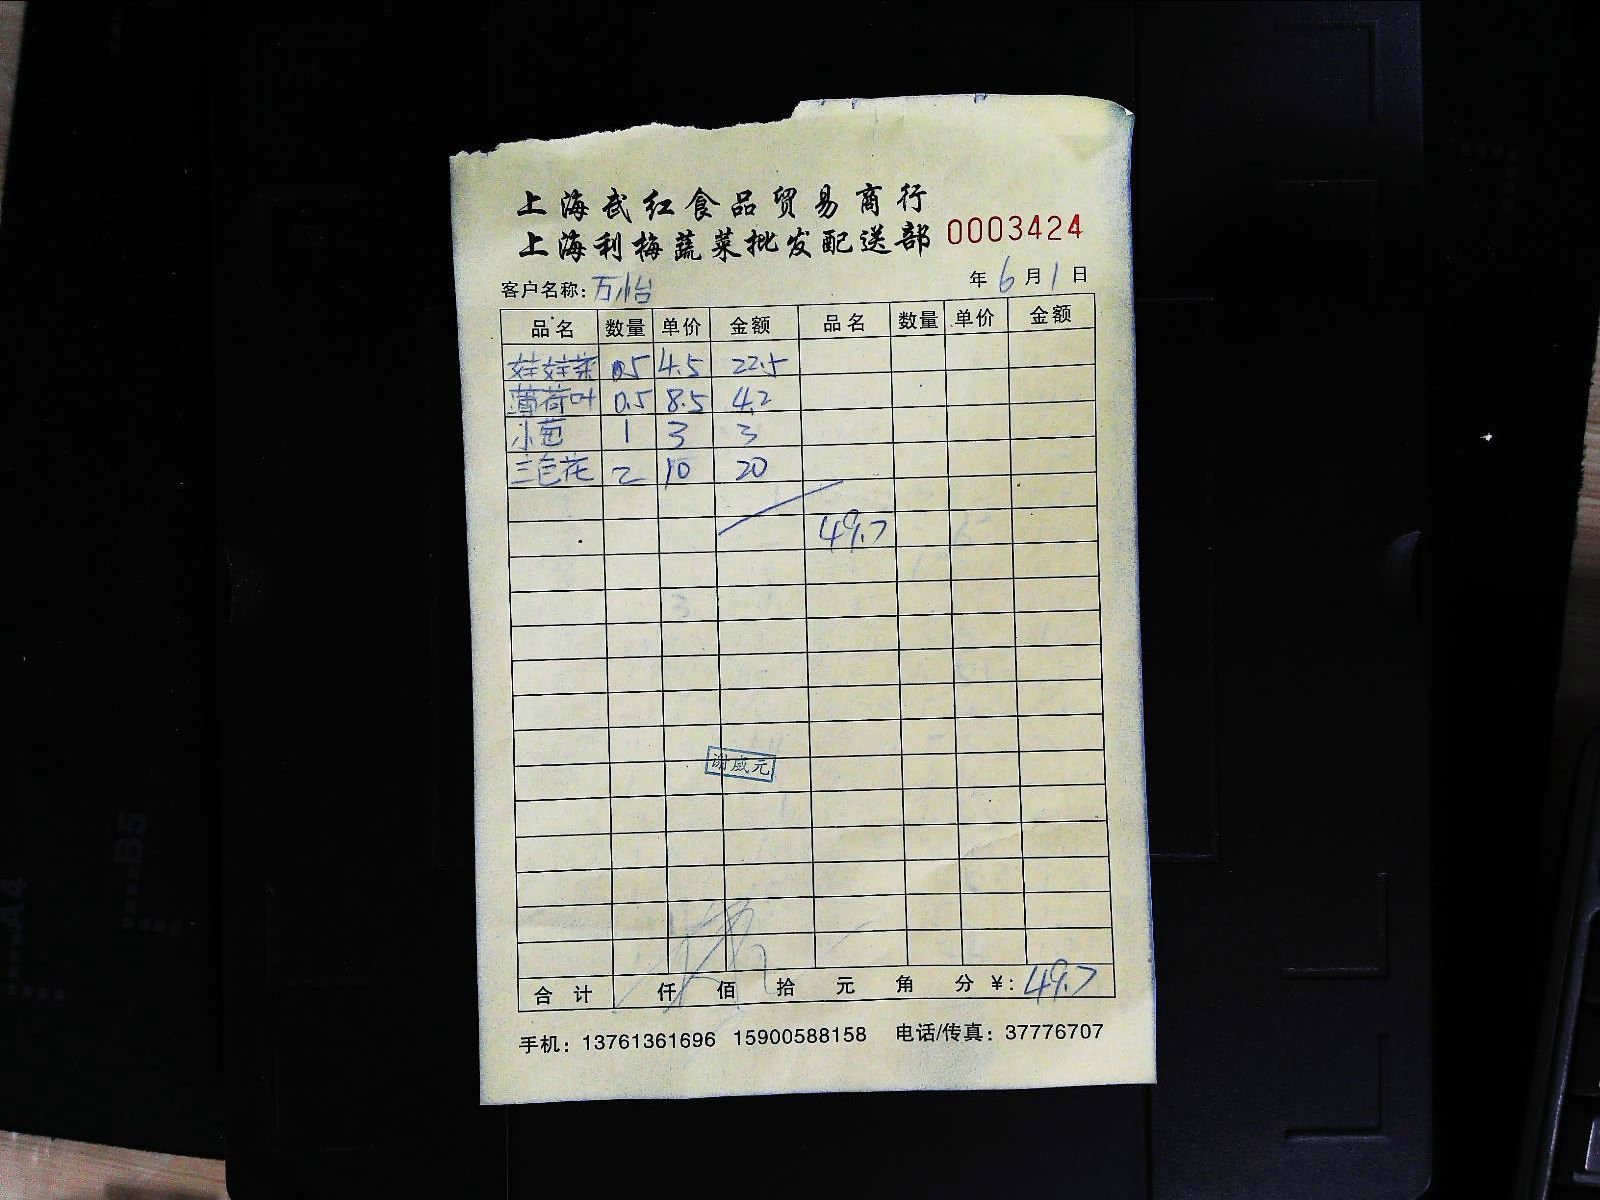 上海武红食品贸易商行
上海利梅蔬菜批发配送部 0003424
客户名称: 万怡 年 6 月 1 日
品名 数量 单价 金额 品名 数量 单价 金额
娃娃菜 5 4.5 22.5
薄荷叶 0.5 8.5 4.2
小葱 1 3 3
三色花 2 10 20
49.7
谢成元
合计 仟 佰 拾 元 角 分 ¥: 49.7
手机: 13761361696 15900588158 电话/传真: 37776707
A4
B5